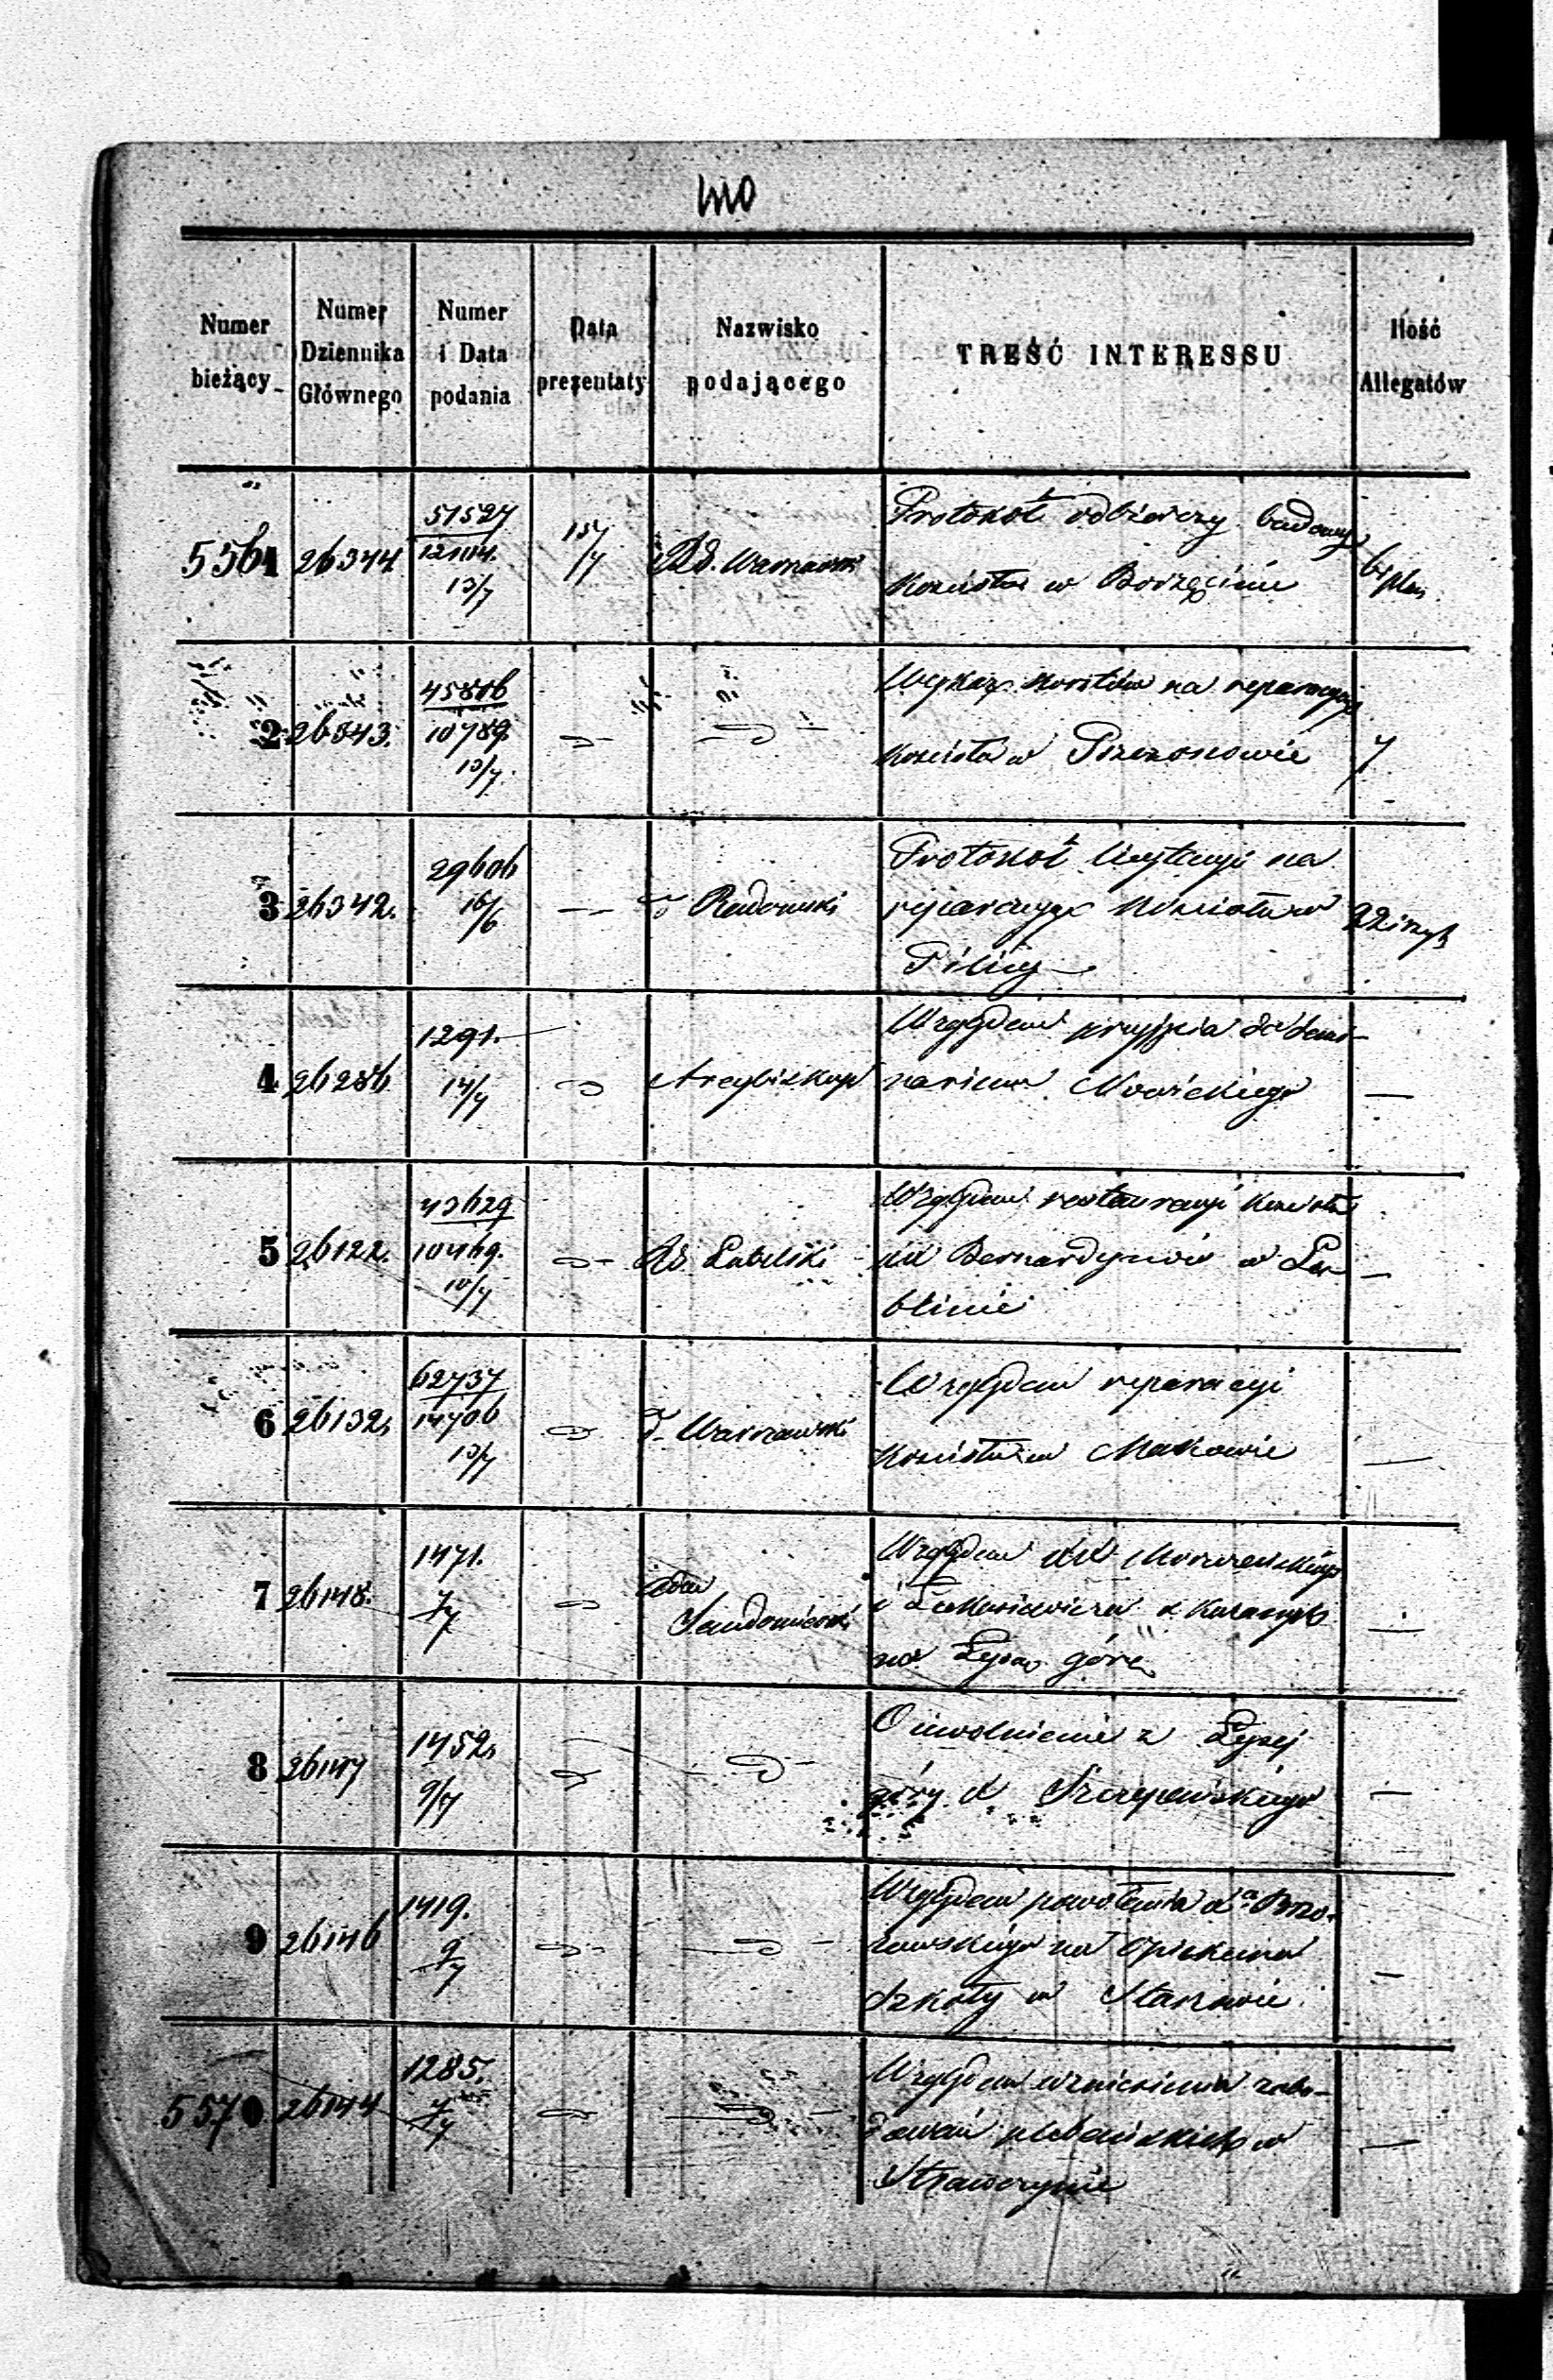 Numer bieżący
Numer Dziennika Głównego
Numer i Data podania
Data prezentaty
Nazwisko podającego
TREŚĆ INTERESSU
Ilość Allegatów
5561 26344 51527 13/7 15/7 Rd. Warszawski
Protokół odbiorczy budowy
Kościoła w Borzęcinie
2 26343. 45806 10789. 13/7.
Wykaz kosztów na reparacyą
Kościoła w 7
3 26342. 29606 16/6 — Radomski
Protokół licytacyi na
reparacyą Kościoła w
Pilicy
4 26286 1291. 14/7 Arcybiskup
Względem przyjęcia do Semi-
narium Nowickiego —
5 26122. 43629 10469. 10/7 Rd Lubelski
Względem restauracyi Kościoła
XX Bernardynów w Lu- —
blinie
6 26132. 62737 14706 13/7 Warszawski
Względem reparacyi
Kościoła w Makowie —
7 26148. 1471. 7/7 Adm Sandomierski
Względem XX
i Łukasiewicza z
na Łysą górę —
8 26147 1452. 9/7
O uwolnienie z Łysej
góry X Szczepańskiego —
9 26146 1419. 9/7
Względem powołania Xa Brzo-
zowskiego na Opiekuna
Szkoły w —
5570 26144 1285. 7/7
Względem wzniesienia zabu-
dowań plebańskich w —